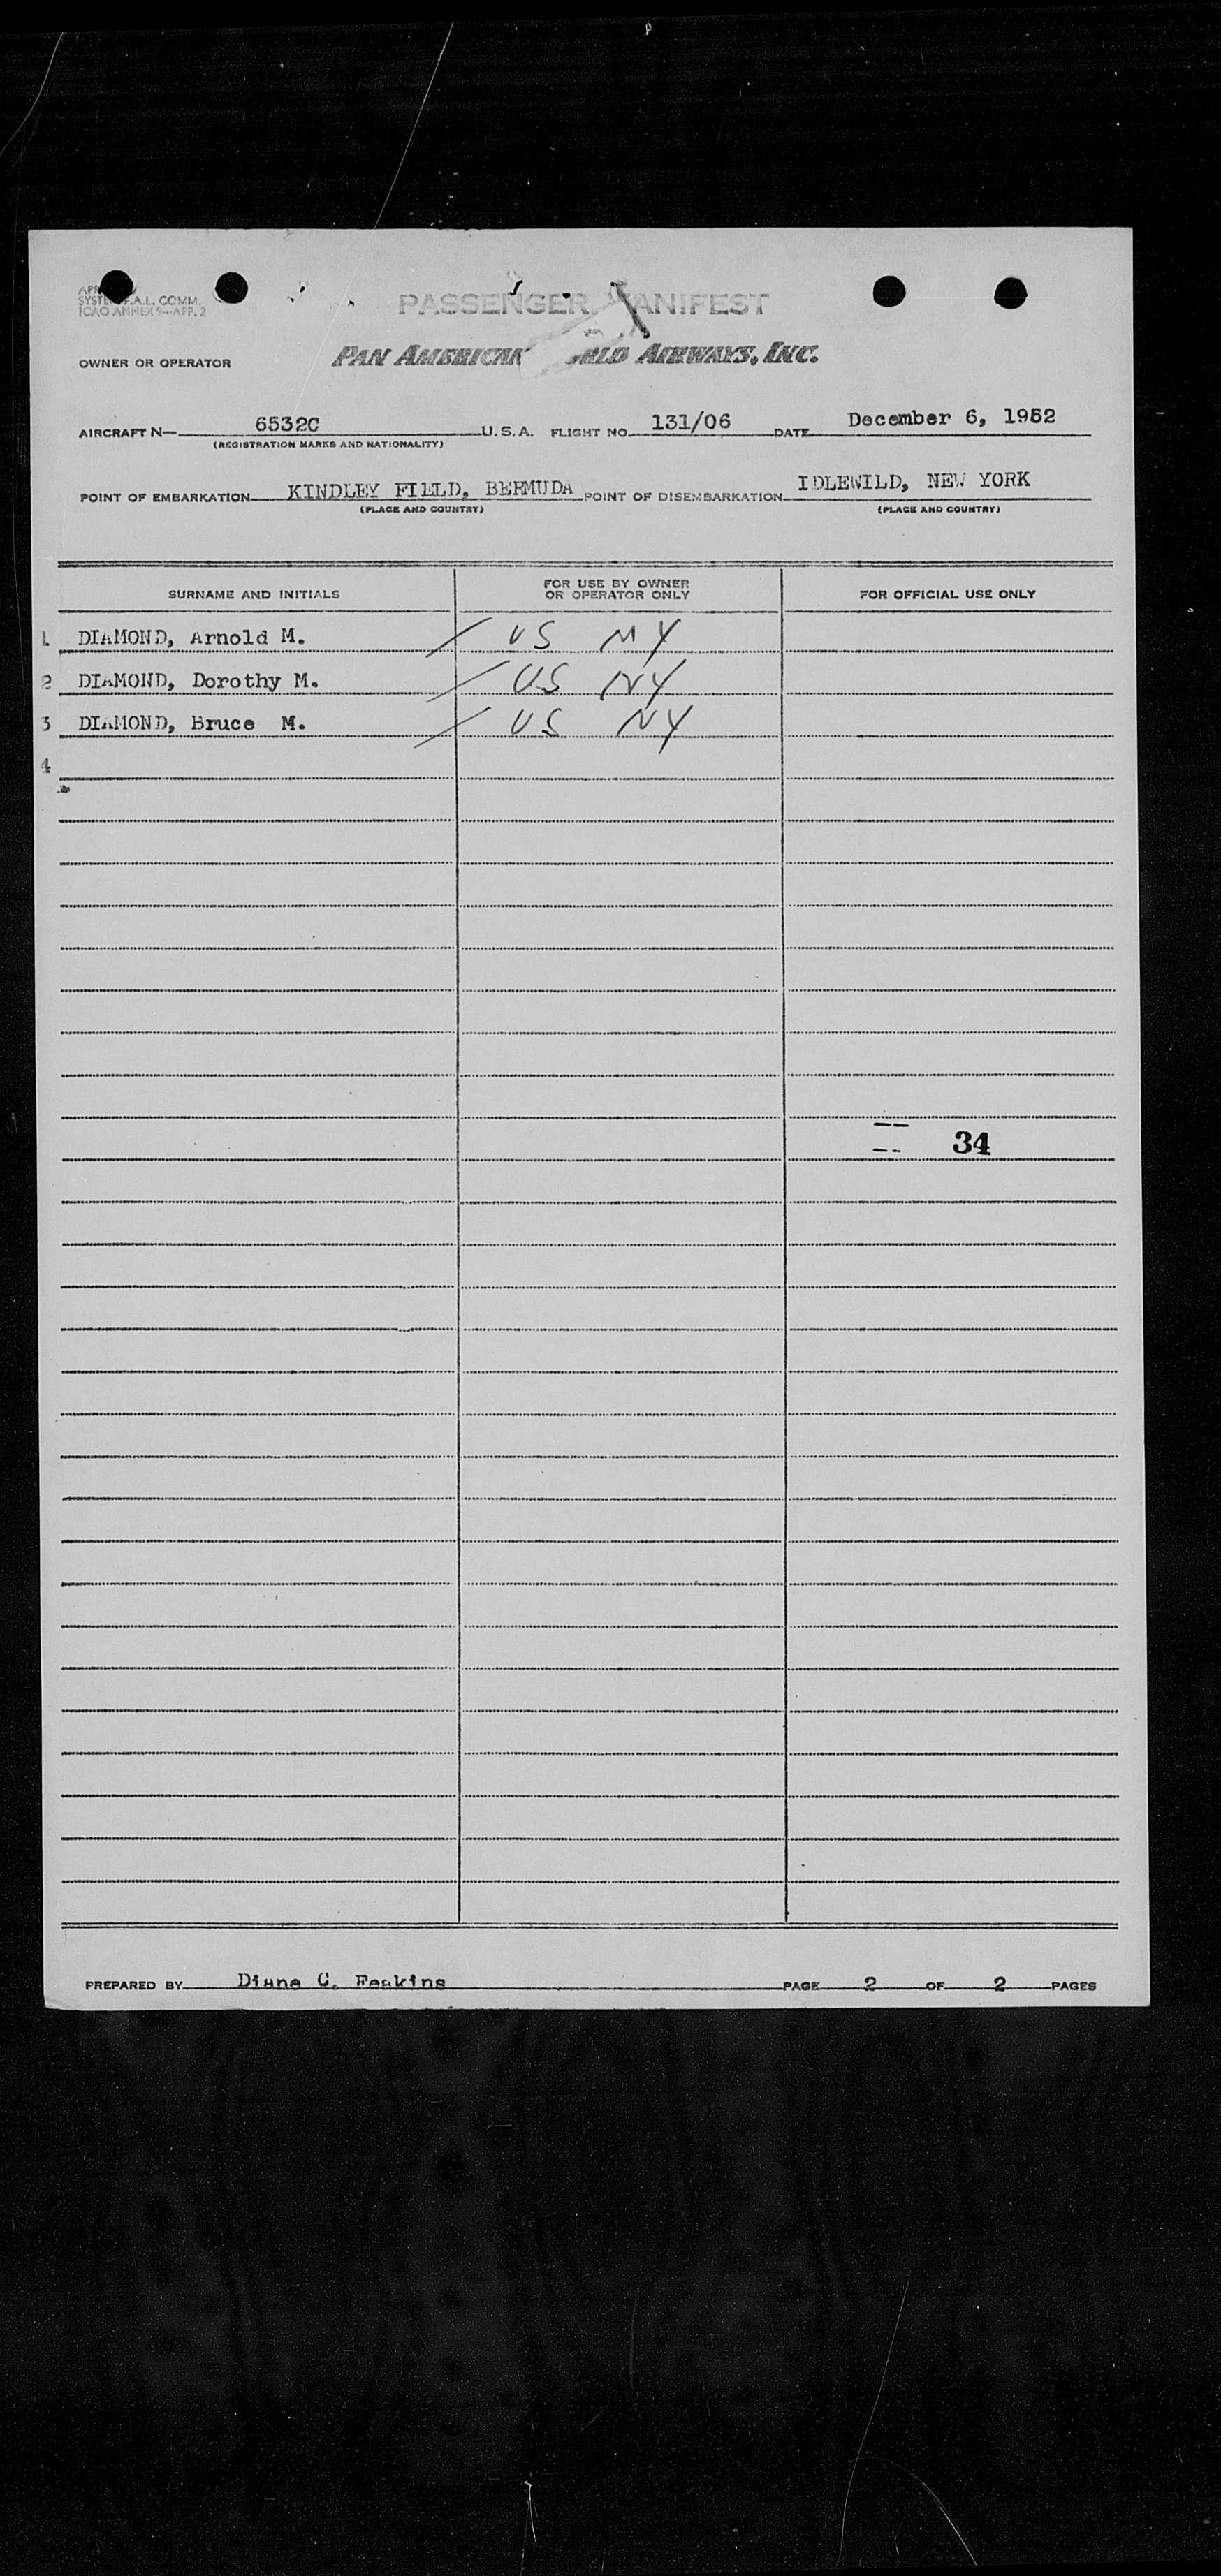 PASSENGER MANIFEST
SYSTEM F.A.L. COMM.
ICAO ANNEX 9—APP. 2
OWNER OR OPERATOR PAN AMERICAN WORLD AIRWAYS, INC.
AIRCRAFT N— 6532C U.S.A. FLIGHT NO. 131/06 DATE December 6, 1952
(REGISTRATION MARKS AND NATIONALITY)
POINT OF EMBARKATION KINDLEY FIELD, BERMUDA POINT OF DISEMBARKATION IDLEWILD, NEW YORK
(PLACE AND COUNTRY) (PLACE AND COUNTRY)
SURNAME AND INITIALS FOR USE BY OWNER OR OPERATOR ONLY FOR OFFICIAL USE ONLY
1 DIAMOND, Arnold M. / US NY
2 DIAMOND, Dorothy M. / US NY
3 DIAMOND, Bruce M. / US NY
4
-- 34
--
PREPARED BY Diane C. Feakins PAGE 2 OF 2 PAGES